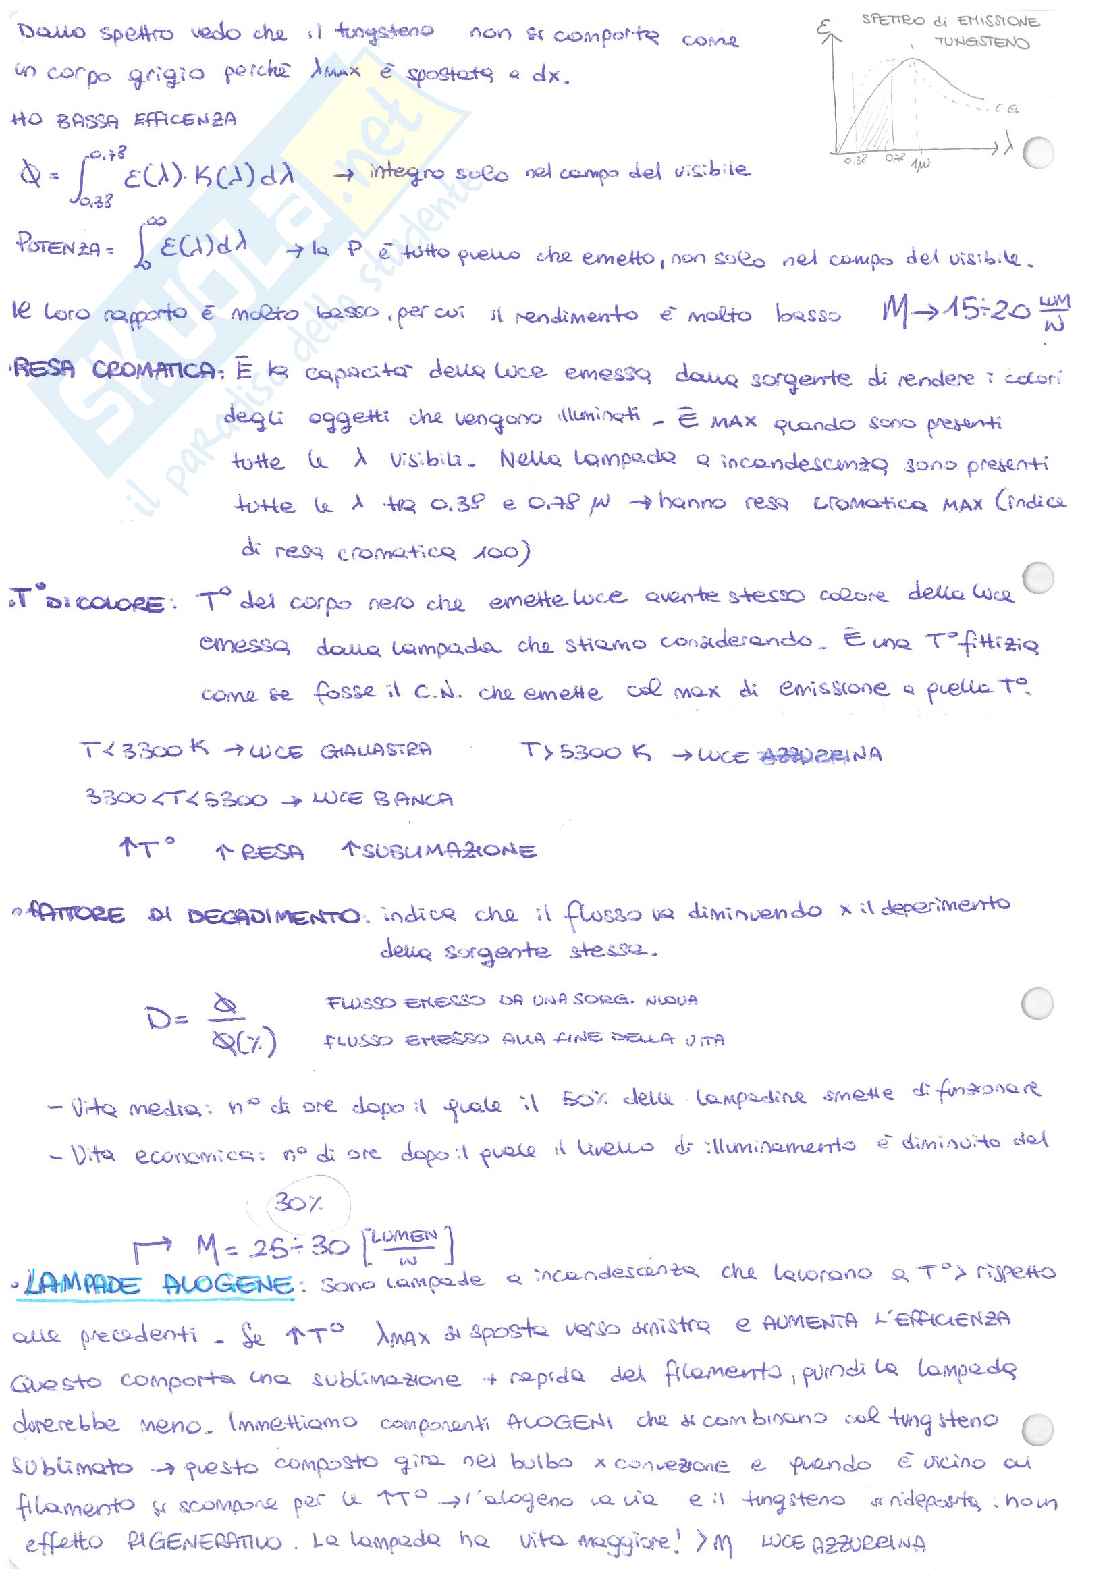 Dallo spettro vedo che il tungsteno non si comporta come
un corpo grigio perchè λmax è spostata a dx.
SPETTRO di EMISSIONE
TUNGSTENO
ε
λ
0.38 0.78 1μ
HO BASSA EFFICENZA
Φ = ∫ 0.38 0.78 ε(λ)·K(λ)dλ → integro solo nel campo del visibile
POTENZA = ∫ 0 ∞ ε(λ)dλ → la P è tutto quello che emetto, non solo nel campo del visibile.
Il loro rapporto è molto basso, per cui il rendimento è molto basso η → 15÷20 LUM/W
· RESA CROMATICA: È la capacità della luce emessa dalla sorgente di rendere i colori
degli oggetti che vengono illuminati - È MAX quando sono presenti
tutte le λ visibili - Nella lampada a incandescenza sono presenti
tutte le λ tra 0.38 e 0.78 μ → hanno resa cromatica MAX (indice
di resa cromatica 100)
· T° DI COLORE: T° del corpo nero che emette luce avente stesso colore della luce
emessa dalla lampada che stiamo considerando. È una T° fittizia
come se fosse il C.N. che emette col max di emissione a quella T°.
T < 3300 K → LUCE GIALLASTRA T > 5300 K → LUCE AZZURRINA
3300 < T < 5300 → LUCE BANCA
↑T° ↑ RESA ↑ SUBLIMAZIONE
· FATTORE DI DECADIMENTO: indica che il flusso va diminuendo x il deperimento
della sorgente stessa.
D = Φ / Φ(%) FLUSSO EMESSO DA UNA SORG. NUOVA
FLUSSO EMESSO ALLA FINE DELLA VITA
- Vita media: n° di ore dopo il quale il 50% delle lampadine smette di funzionare
- Vita economica: n° di ore dopo il quale il livello di illuminamento è diminuito del
30%
↱ η = 25÷30 [LUMEN/W]
· LAMPADE ALOGENE: Sono lampade a incandescenza che lavorano a T° > rispetto
alle precedenti - Se ↑T° λMAX si sposta verso sinistra e AUMENTA L'EFFICIENZA
Questo comporta una sublimazione + rapida del filamento, quindi la lampada
durerebbe meno. Immettiamo componenti ALOGENI che si combinano col tungsteno
sublimato → questo composto gira nel bulbo x convezione e quando è vicino al
filamento si scompone per le ↑T° → l'alogeno va via e il tungsteno si rideposita: ho un
effetto RIGENERATIVO. La lampada ha vita maggiore! > η LUCE AZZURRINA
SKUOLA.net
il paradiso dello studente